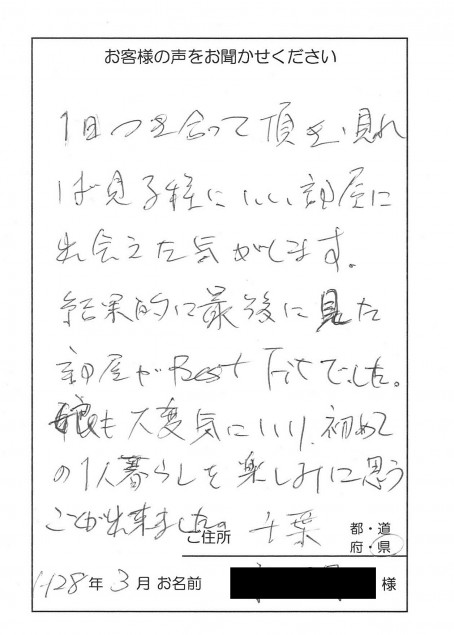 お客様の声をお聞かせください
1日つき合って頂き、見れ
ば見る程にいい部屋に
出会えた気がします。
結果的に最後に見た
部屋がBest Fitでした。
娘も大変気にいり、初めて
の1人暮らしを楽しみに思う
ことが出来ました。
ご住所 千葉 都・道
府・県
H28年3月 お名前 様